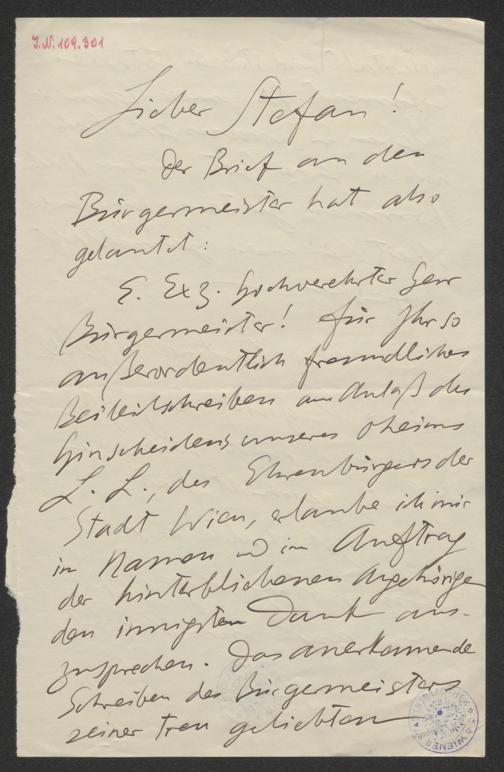 J.N. 109.301
Lieber Stefan!
Der Brief an den
Bürgermeister hat also
gelautet:
E. Exz. Hochverehrter Herr
Bürgermeister! Für Ihr so
außerordentlich freundliches
Beileidschreiben aus Anlaß des
Hinscheidens unseres Oheims
L. L., des Ehrenbürgers der
Stadt Wien, erlaube ich mir
im Namen und im Auftrag
der hinterbliebenen Angehörigen
den innigsten Dank aus-
zusprechen. Das anerkennende
Schreiben des Bürgermeisters
seiner treu geliebten
WIENER